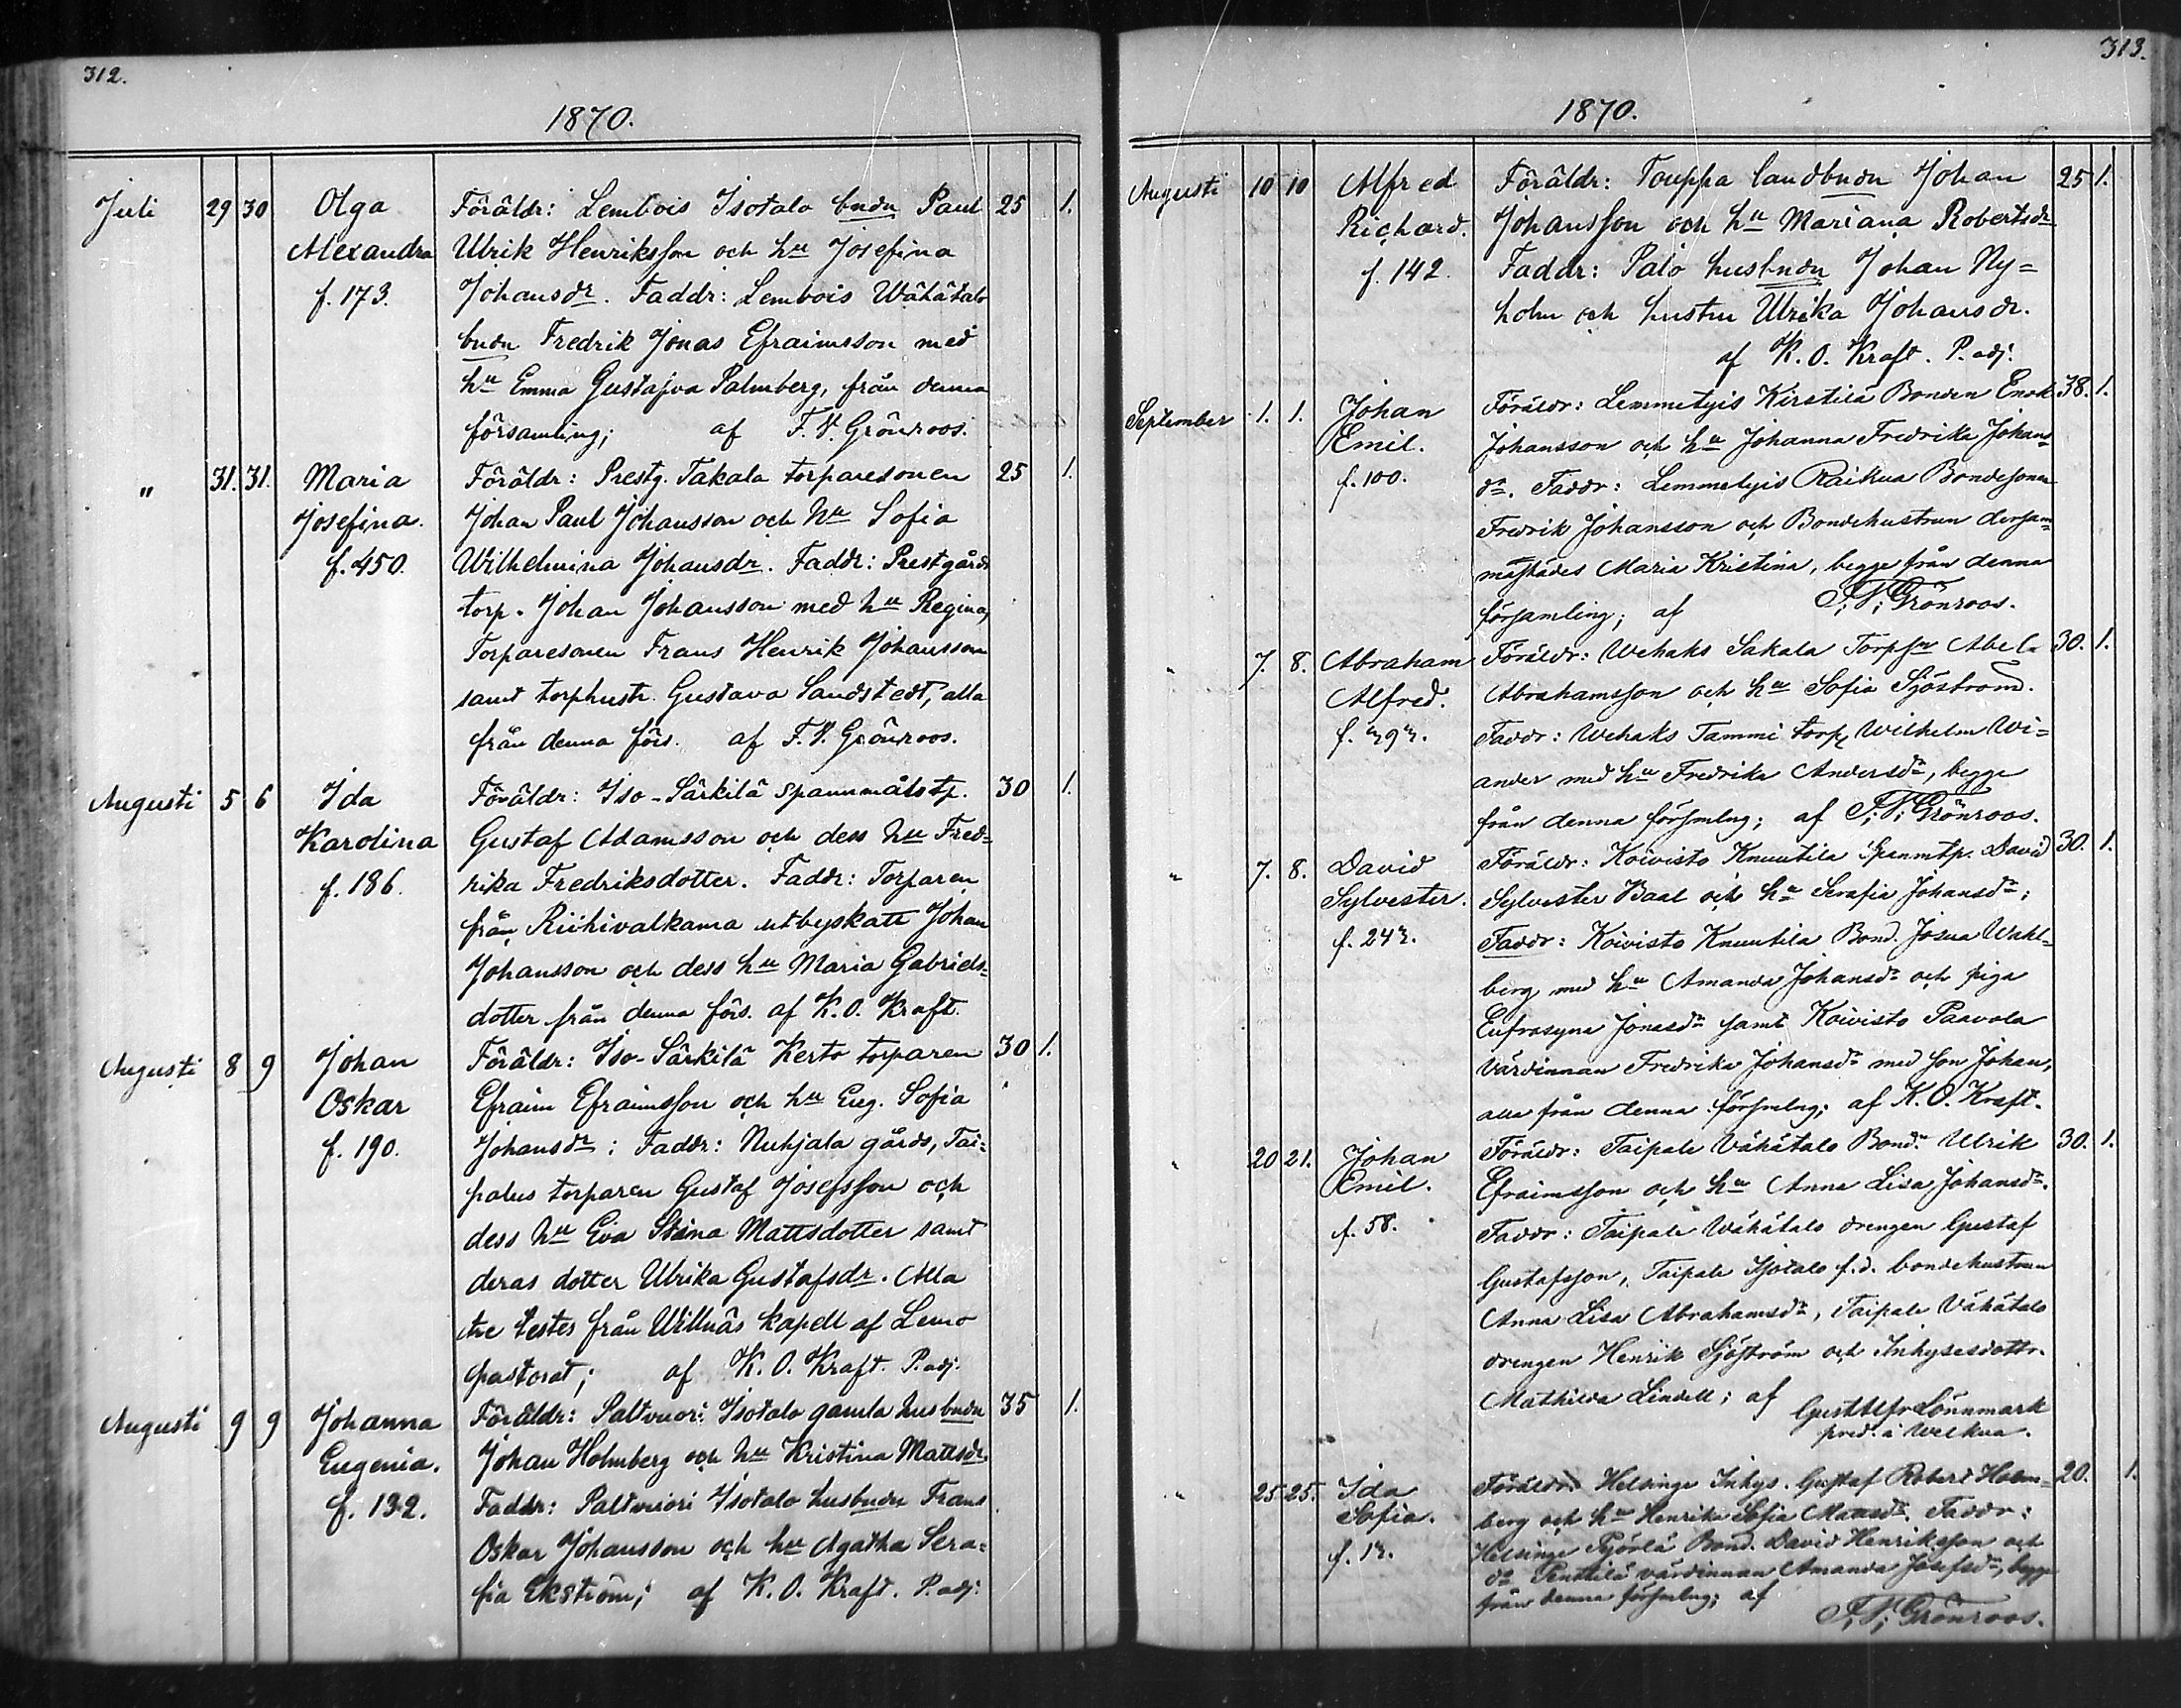 312.
1870.
Juli 29 30 Olga Föräldr: Lembois Isotalo bndn Paul 25 1.
Alexandra Ulrik Henriksson och hu Josefina
f. 173. Johansdr. Faddr: Lembois Wähätalo
bndn Fredrik Jonas Efraimsson med
hu Emma Gustafva Palmberg, från denna
församling; af F. V. Grönroos.
" 31. 31. Maria Föräldr: Prestg. Takala torparesonen 25 1.
Josefina. Johan Paul Johansson och hu Sofia
f. 450. Wilhelmina Johansdr. Faddr: Prestgårds
torp. Johan Johansson med hu Regina,
Torparesonen Frans Henrik Johansson
samt torphustr. Gustava Sandstedt, alla
från denna förs. af F. V. Grönroos.
Augusti 5 6 Ida Föräldr: Iso-Särkilä spannmålstp. 30 1.
Karolina Gustaf Adamsson och dess hu Fred-
f. 186. rika Fredriksdotter. Faddr: Torparen
från Riihivalkama utbyskatt Johan
Johansson och dess hu Maria Gabriels-
dotter från denna förs. af K. O. Kraft.
Augusti 8 9 Johan Föräldr: Iso-Särkilä Kerto torparen 30 1.
Oskar Efraim Efraimsson och hu Eug. Sofia
f. 190. Johansdr: Faddr: Nuhjala gårds, Tai-
palus torparen Gustaf Josefsson och
dess hu Eva Stina Mattsdotter samt
deras dotter Ulrika Gustafsdr. Alla
tre testes från Willnäs kapell af Lemo
pastorat; af K. O. Kraft. P. adj.
Augusti 9 9 Johanna Föräldr: Paltvuori Isotalo gamla husbndn 35 1.
Eugenia. Johan Holmberg och hu Kristina Mattsdr.
f. 132. Faddr: Paltvuori Isotalo husbndn Frans
Oskar Johansson och hu Agatha Sera-
fia Ekström; af K. O. Kraft. P. adj.
313.
1870.
Augusti 10 10 Alfred Föräldr: Touppa landbndn Johan 25 1.
Richard. Johansson och hu Mariana Robertsdr
f. 142. Faddr: Palo husbndn Johan Ny-
holm och hustru Ulrika Johansdr.
af K. O. Kraft. P. adj.
September 1. 1. Johan Föräldr: Lemmetyis Kirstilä Bonden Enok 38. 1.
Emil. Johansson och hu Johanna Fredrika Johans-
f. 100. dr. Faddr: Lemmetyis Raikua Bondesonen
Fredrik Johansson och Bondehustrun dersam-
mastädes Maria Kristina, begge från denna
församling; af F. V. Grönroos.
" 7. 8. Abraham Föräldr: Wehaks Sakala Abel 30. 1.
Alfred. Abrahamsson och hu Sofia Sjöström.
Faddr: Wehaks Tammi torp Wilhelm Wi-
ander med hu Fredrika Andersdr, begge
från denna församlng; af F. V. Grönroos.
" 7. 8. David Föräldr: Koivisto Knuutila Spanmtp. David 30. 1.
Sylvester. Sylvester Baal och hu Serafia Johansdr;
Faddr: Koivisto Knuutila Bond. Josua Wahl-
berg med hu Amanda Johansdr och piga
Eufrosyne Jonasdr samt Koivisto Paavola
Värdinnan Fredrika Johansdr med son Johan,
alla från denna församlng; af K. O. Kraft.
" 20 21. Johan Föräldr: Taipale Vähätalo Bondn Ulrik 30. 1.
Emil. Efraimsson och hu Anna Lisa Johansdr.
f. 58. Faddr: Taipale Wähätalo drengen Gustaf
Gustafsson, Taipale Isotalo f.d. bondehustrun
Anna Lisa Abrahamsdr, Taipale Vähätalo
drengen Henrik Sjöström och Inhysesdottr.
Mathilda Lindell; af Gust Alfr Lönnmark
pred. i Welkua.
" 25. 25. Ida Föräldr: Helsinge Inhys. Gustaf Robert Holm- 20. 1.
Sofia. berg och hu Henrika Sofia Mattsdr. Faddr:
Helsinge Bond. David Henriksson och
do Penttilä värdinnan Amanda Josefsdr, begge
från denna församlng; af F. V. Grönroos.